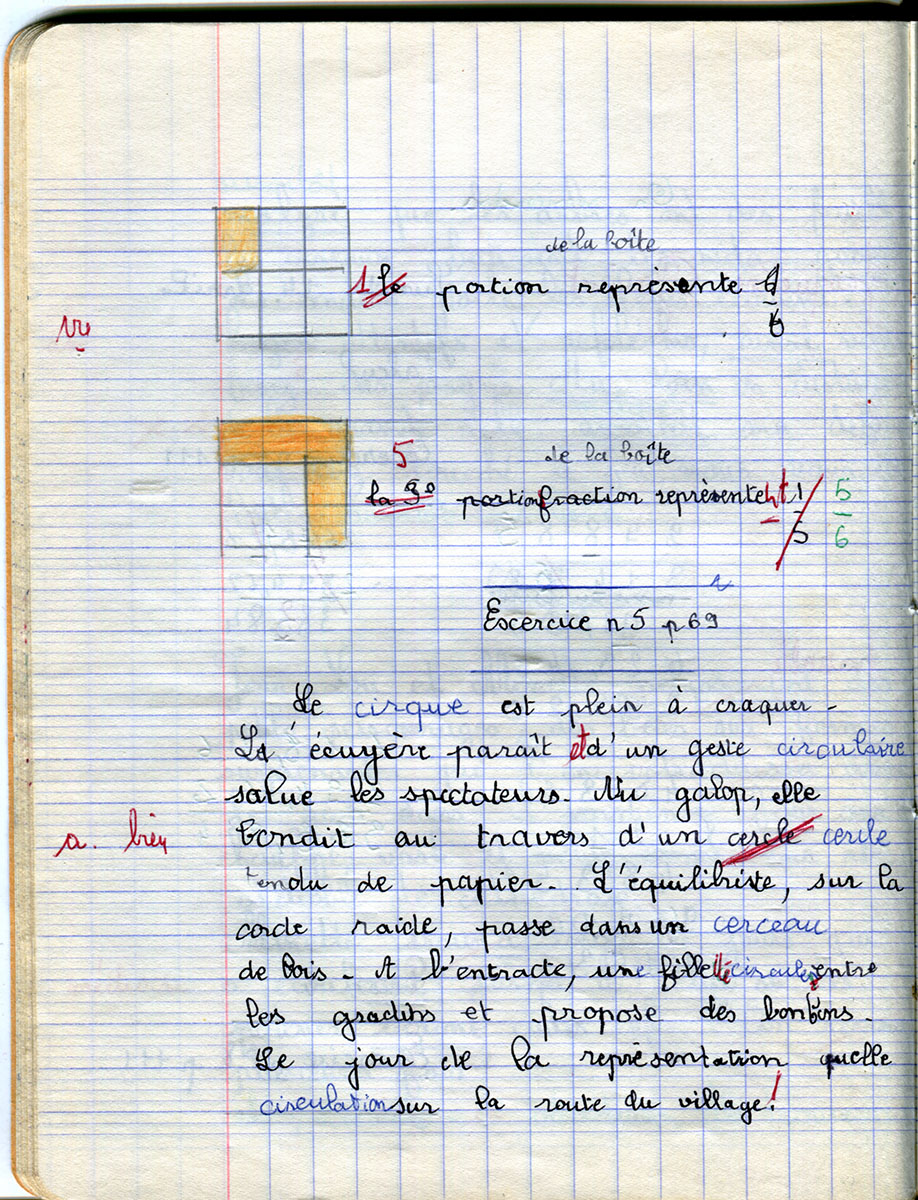 de la boîte
1 le portion représente 1/6
vu
5 de la boîte
la 3e portion fraction représentent 1/5 5/6
Excercice n 5 p 69
Le cirque est plein à craquer.
L'écuyère paraît et d'un geste circulaire
salue les spectateurs. Au galop, elle
a. bien bondit au travers d'un cercle cercle
tendu de papier. L'équilibriste, sur la
corde raide, passe dans un cerceau
de bois. A l'entracte, une fille circule entre
les gradins et propose des bonbons.
Le jour de la représentation quelle
circulation sur la route du village!